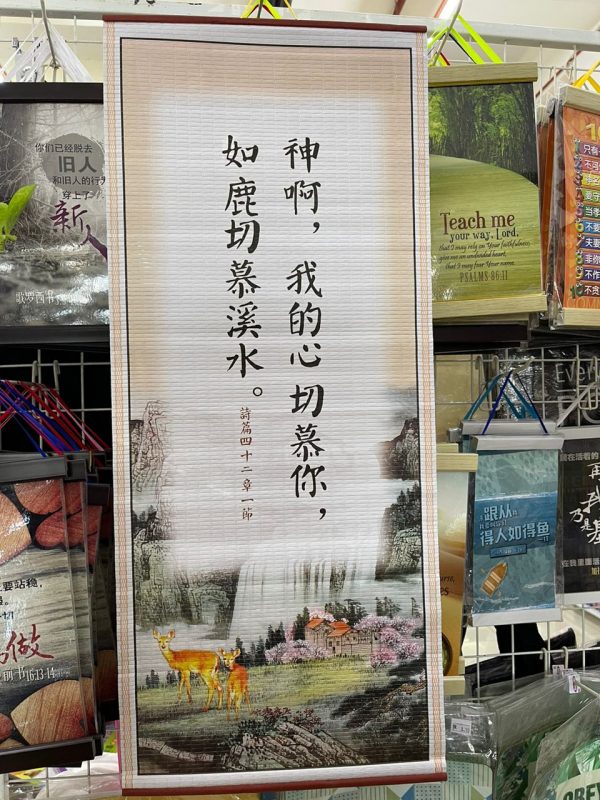 神啊，我的心切慕你，
如鹿切慕溪水。
詩篇四十二章一節
你们已经脱去
旧人
和旧人的行为
穿上了
新人
歌罗西书
Teach me
your way, Lord,
that I may rely on Your faithfulness;
give me an undivided heart,
that I may fear Your name.
PSALMS 86:11
跟从
得人如得鱼
要站稳，
16:13-14
再
我
乃是
OBEY